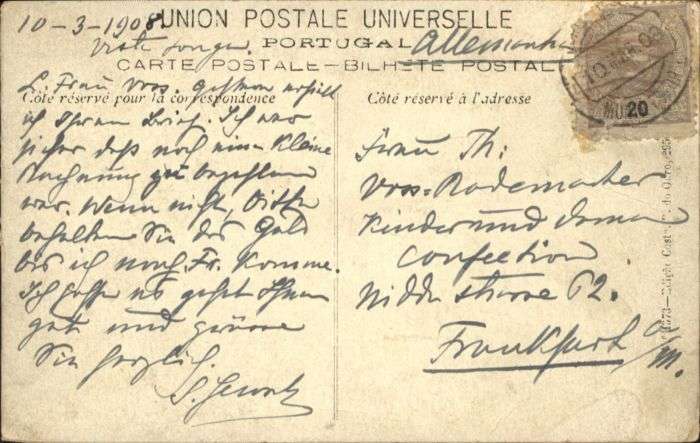 10-3-1908
UNION POSTALE UNIVERSELLE
PORTUGAL
Allemanha
CARTE POSTALE-BILHETE POSTAL
Côté réservé pour la correspondence
Côté réservé à l'adresse
L. Frau Voss. Gestern erhielt
ich Ihren Brief. Ich war
sicher daß noch eine kleine
Rechnung zu bezahlen
war. Wenn nicht, bitte
behalten Sie das Geld
bis ich nach Fr. komme.
Ich hoffe es geht Ihnen
gut und grüsse
Sie herzlich.
Frau Th:
Voss-Rademacher
Kinder und Damen
Confection
Niddastrasse 62.
Frankfurt a/M.
20